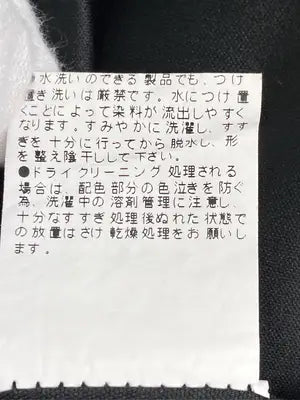 ●水洗いのできる製品でも、つけ
置き洗いは厳禁です。水につけ置
くことによって染料が流出しやすく
なります。すみやかに洗濯し、すす
ぎを十分に行ってから脱水し、形
を整え陰干しして下さい。
●ドライクリーニング処理される
場合は、配色部分の色泣きを防ぐ
為、洗濯中の溶剤管理に注意し、
十分なすすぎ処理後ぬれた状態で
の放置はさけ乾燥処理をお願いし
ます。